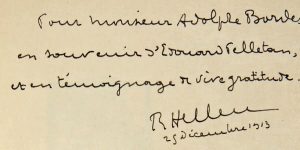 Pour monsieur Adolphe Bordes
en souvenir d'Edouard Pelletan,
et en témoignage de vive gratitude.
R Helleu
25 Décembre 1913